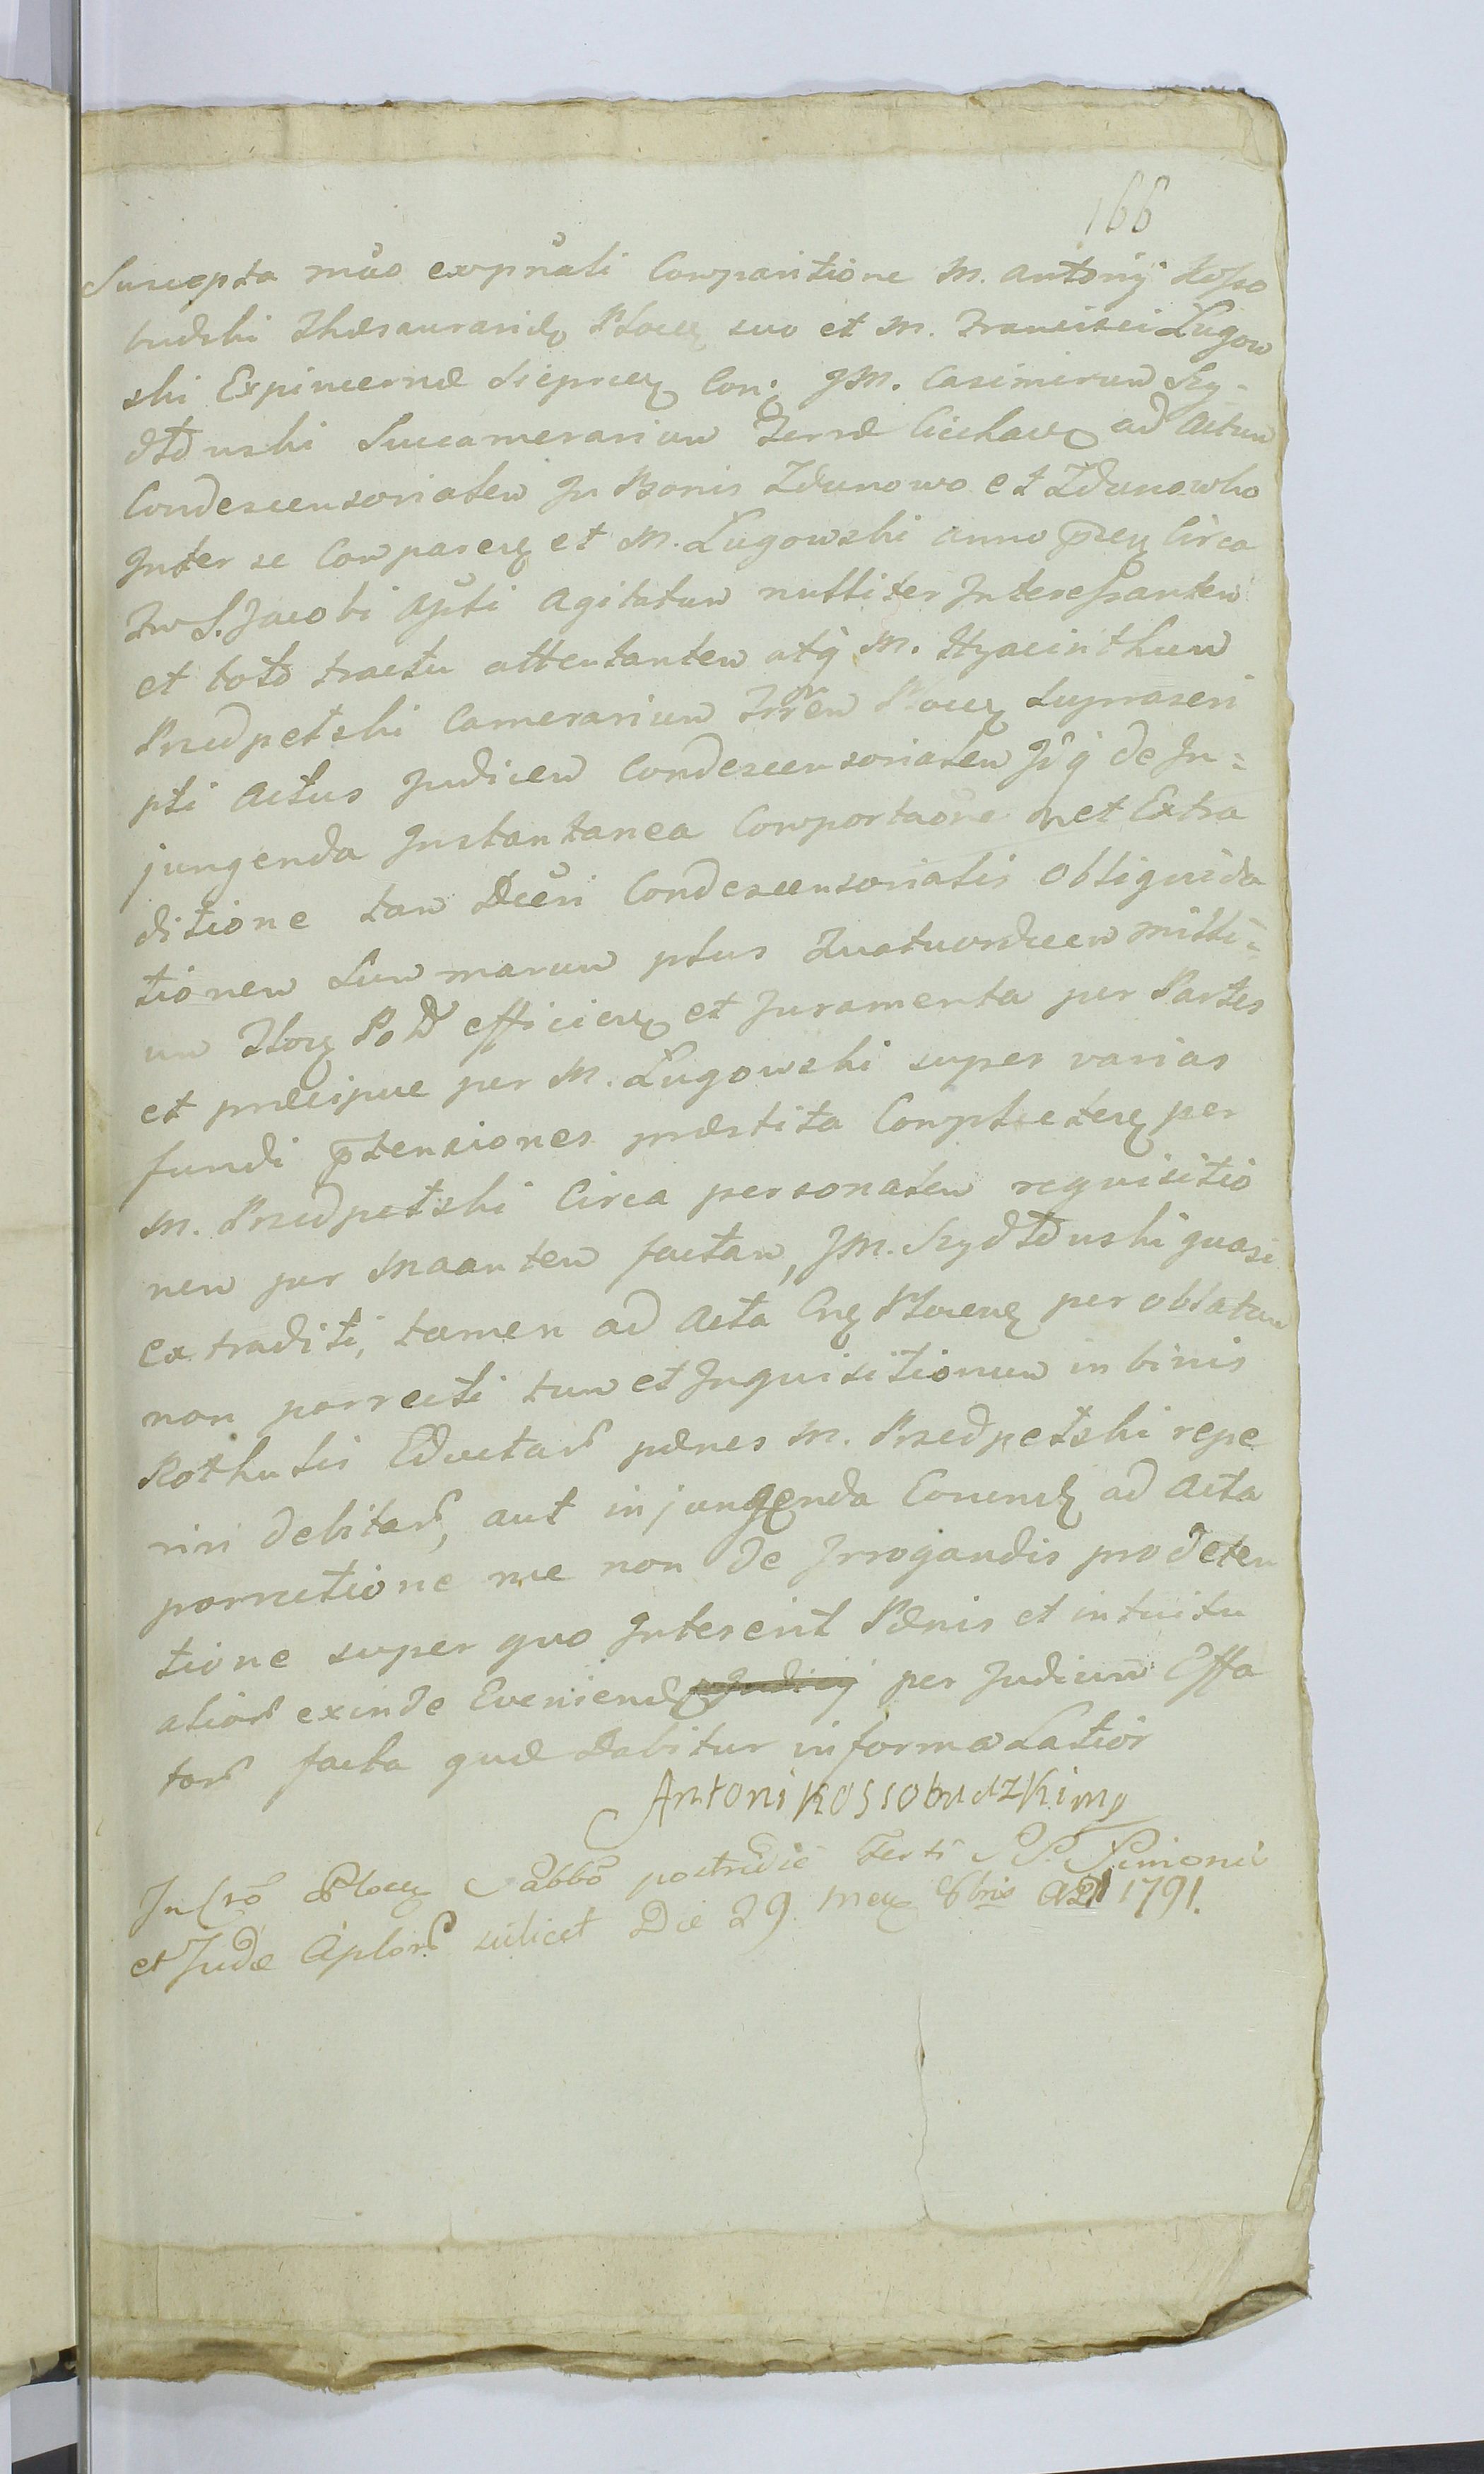 166
Suscepta mũo exprũali Comparitione M. Antonij Kosso
budzki Thesauraridę Płocę suo et M. Francisci Ługow
ski Expincernæ Sieprcę Con: JM. Casimirum Szy-
dłowski Succamerarium Terræ Ciechaę ad Actum
Condescensorialem In Bonis Zdunowo et Zdunowko
Inter se Comparenę et M. Ługowski anno p̃rę Circa
Fm S. Jacobi Apłi Agitatum nulliter Interessantem
et toto tractu attentantem atq̃ M. Hyacinthum
Przedpełski Camerarium Trrem Płocę Suprascri
pti Actus Judicem Condescensorialem Idq̃ de In=
jungenda Instantanea Comportaõne et Extra
ditione tam Dẽcri Condescensorialis obliquida
tionem Summarum plus Quatuordecem milli=
um Florę Pol efficienę et Juramenta per Partes
et præcipue per M. Ługowski super varias
fundi p̃tensiones præstita Complectenę per
M. Przedpełski Circa personalem requisitio
nem per Maantem factam, JM. Szydłowski quasi
extraditi, tamen ad Acta Crę Płocenę per oblatam
non porrecti tum et Inquisitionum in binis
Rothulis Eductar̃ penes M. Przedpełski repe
riri debitar̃, aut injungenda Eorundę ad Acta
porrectione nec non de Irrogandis pro deten
tione super quo Intererit Pænis et intuitu
alior̃ exinde Eveniendę per Judicium Effa
tor̃ facta quæ Dabitur informa Latior
Antoni Kossobudzki mp
In Crõ Płocę Sabbõ postridie Festi SS. Simonis
et Judæ Aplor̃ scilicet Die 29 Meę 8bris AD 1791.